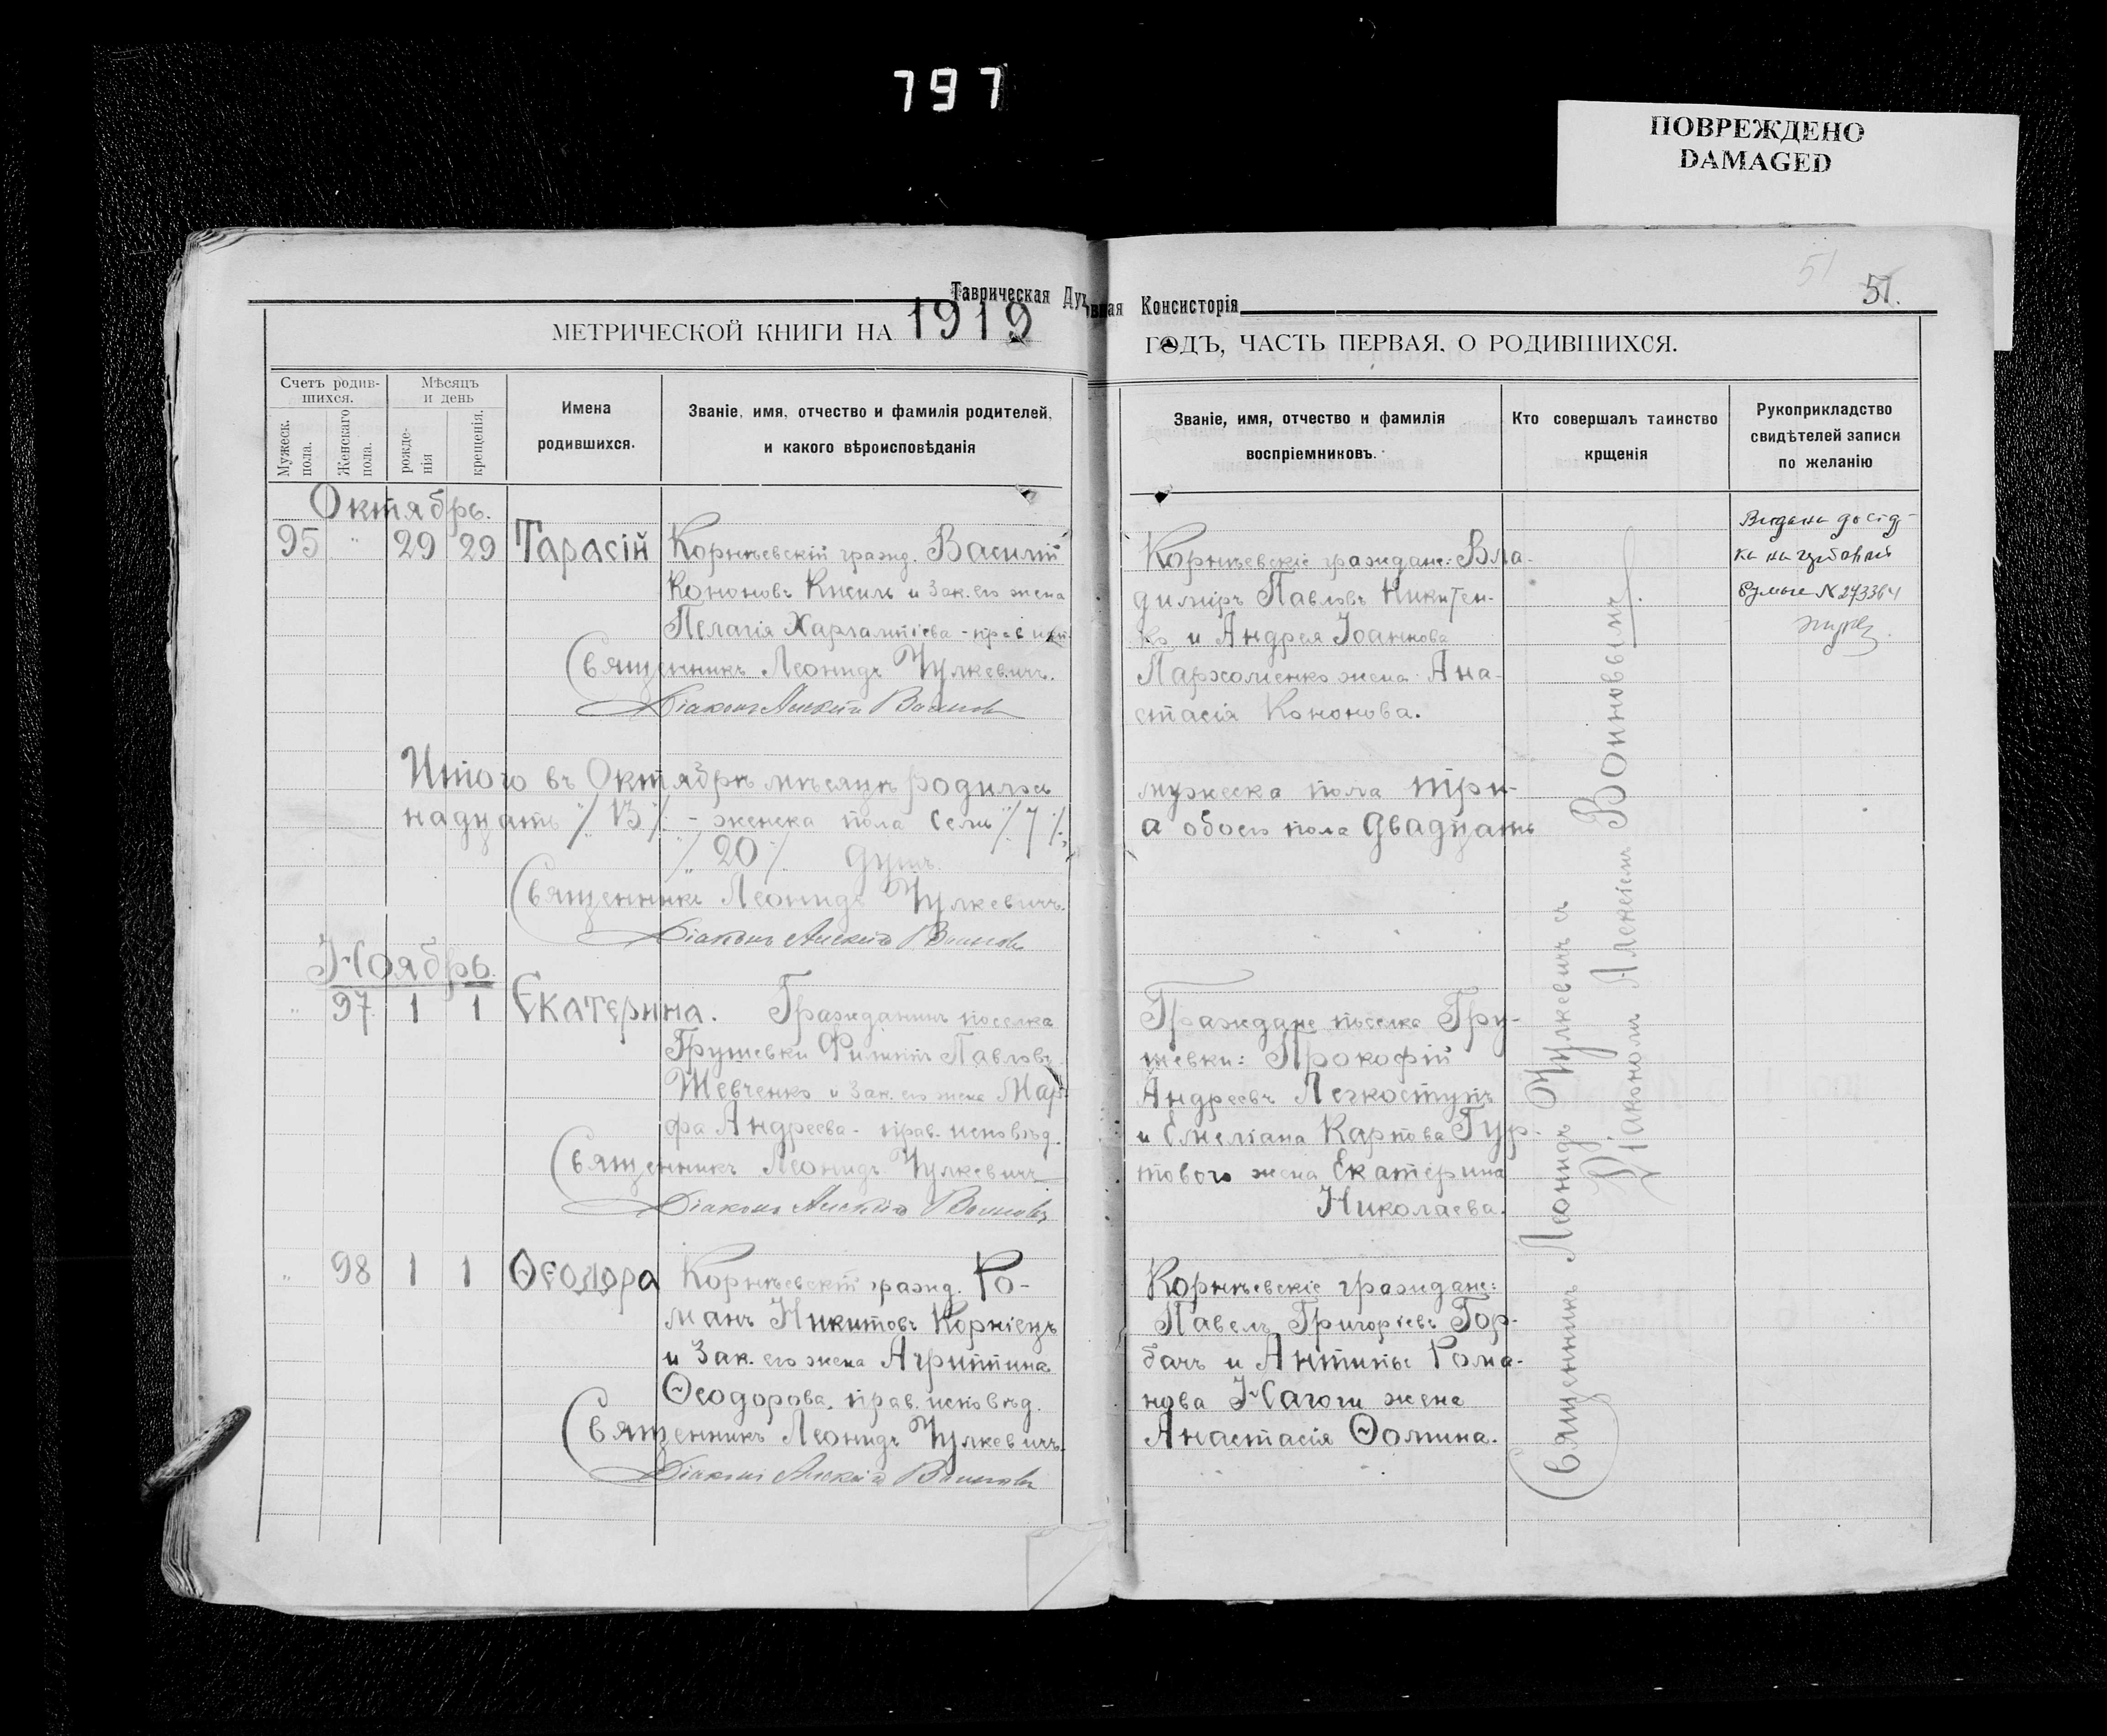 797
ПОВРЕЖДЕНО
DAMAGED
51
51.
Таврическая Духовная Консисторія
МЕТРИЧЕСКОЙ КНИГИ НА 1919
ГОДЪ, ЧАСТЬ ПЕРВАЯ, О РОДИВШИХСЯ.
Счетъ родив-
шихся.
Мужеск. пола.
Женскаго пола.
Мѣсяцъ
и день
рожде-
нія
крещенія.
Имена
родившихся.
Званіе, имя, отчество и фамилія родителей,
и какого вѣроисповѣданія
Званіе, имя, отчество и фамилія
воспріемниковъ.
Кто совершалъ таинство
крщенія
Рукоприкладство
свидѣтелей записи
по желанію
Октябрь.
95 " 29 29 Тарасій
Корнѣевскій гражд. Василій
Кононовъ Кисиль и зак. его жена
Пелагія Харлампіева - прав
Священникъ Леонидъ Чулкевичъ.
Діаконъ Алексій Воиновъ
Корнѣевскіе граждане: Вла-
диміръ Павловъ Никитен-
ко и Андрея Іоаннова
Пархоменко жена Ана-
стасія Кононова.
на
№ 273364
Итого въ Октябрѣ мѣсяцѣ родилось
мужеска пола три-
надцать /13/ - женска пола семь /7/
а обоего пола двадцать
/20/ душъ.
Священникъ Леонидъ Чулкевичъ.
Діаконъ Алексій Воиновъ
Ноябрь.
" 97 1 1 Екатерина.
Гражданинъ поселка
Грушевки Филиппъ Павловъ
Шевченко и зак. его жена Мар-
фа Андреева - прав. исповѣд.
Священникъ Леонидъ Чулкевичъ
Діаконъ Алексій Воиновъ
Граждане поселка Гру-
шевки: Прокофій
Андреевъ Легкоступъ
и Емеліана Карпова Гур-
тового жена Екатерина
Николаева.
" 98 1 1 Ѳеодора
Корнѣевскій гражд. Ро-
манъ Никитовъ Корніецъ
и зак. его жена Агриппина
Ѳеодорова, прав. исповѣд.
Священникъ Леонидъ Чулкевичъ.
Діаконъ Алексій Воиновъ
Корнѣевскіе граждане:
Павелъ Григоріевъ Гор-
бачъ и Антипы Рома-
нова Нагоги жена
Анастасія Ѳомина.
Священникъ Леонидъ Чулкевичъ съ
Діакономъ Алексіемъ Воиновымъ.